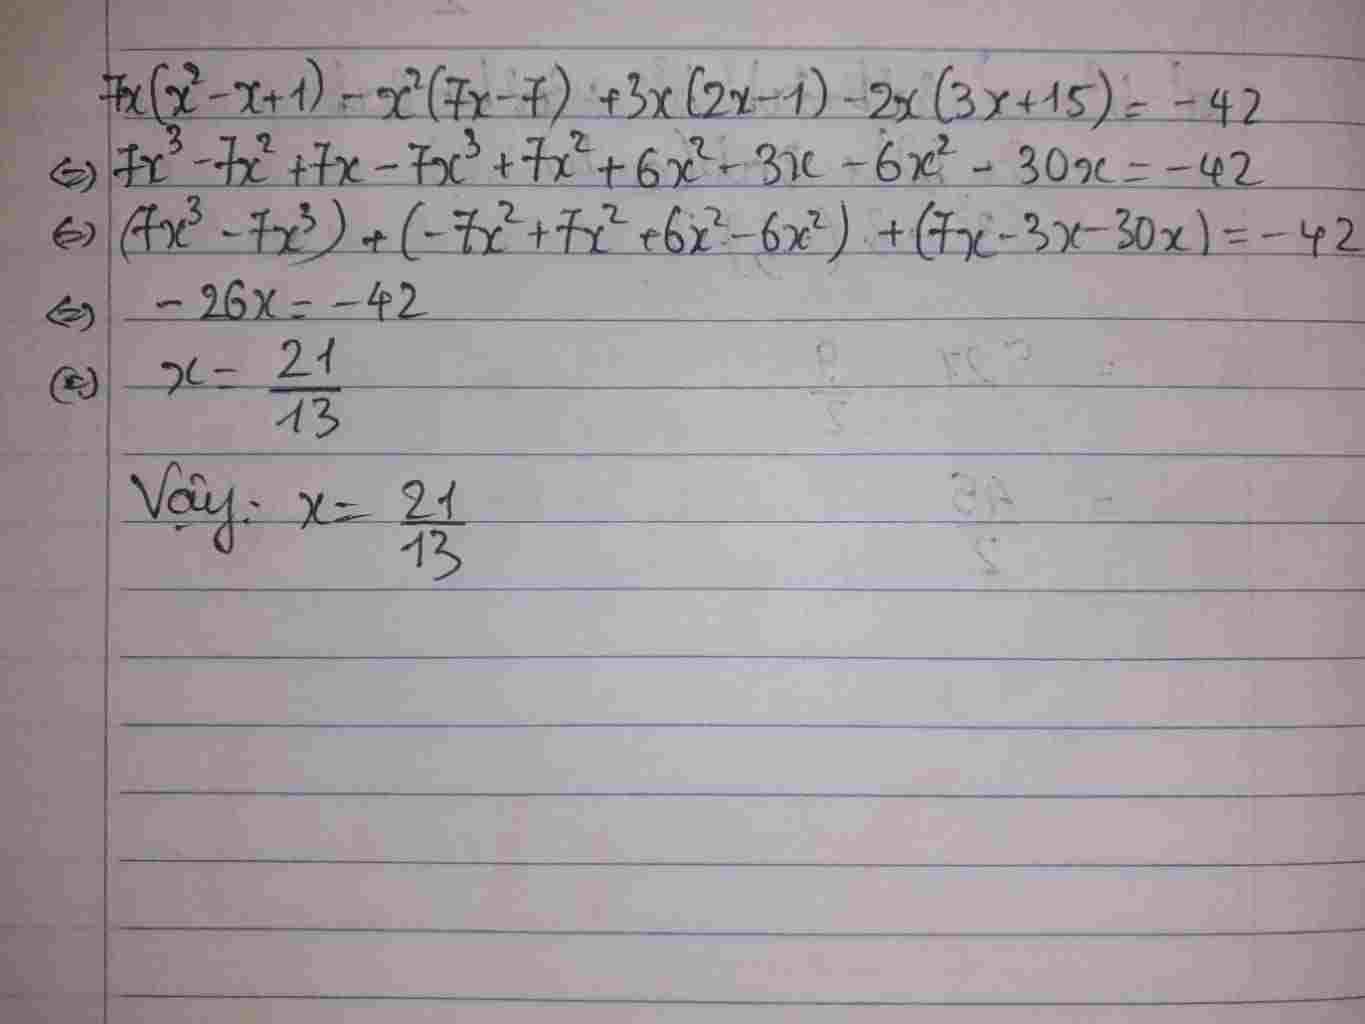 7x(x² - x + 1) - x²(7x - 7) + 3x(2x - 1) - 2x(3x + 15) = -42
⇔) 7x³ - 7x² + 7x - 7x³ + 7x² + 6x² - 3x - 6x² - 30x = -42
⇔) (7x³ - 7x³) + (-7x² + 7x² + 6x² - 6x²) + (7x - 3x - 30x) = -42
⇔) - 26x = -42
⇔) x = 21/13
Vậy: x = 21/13